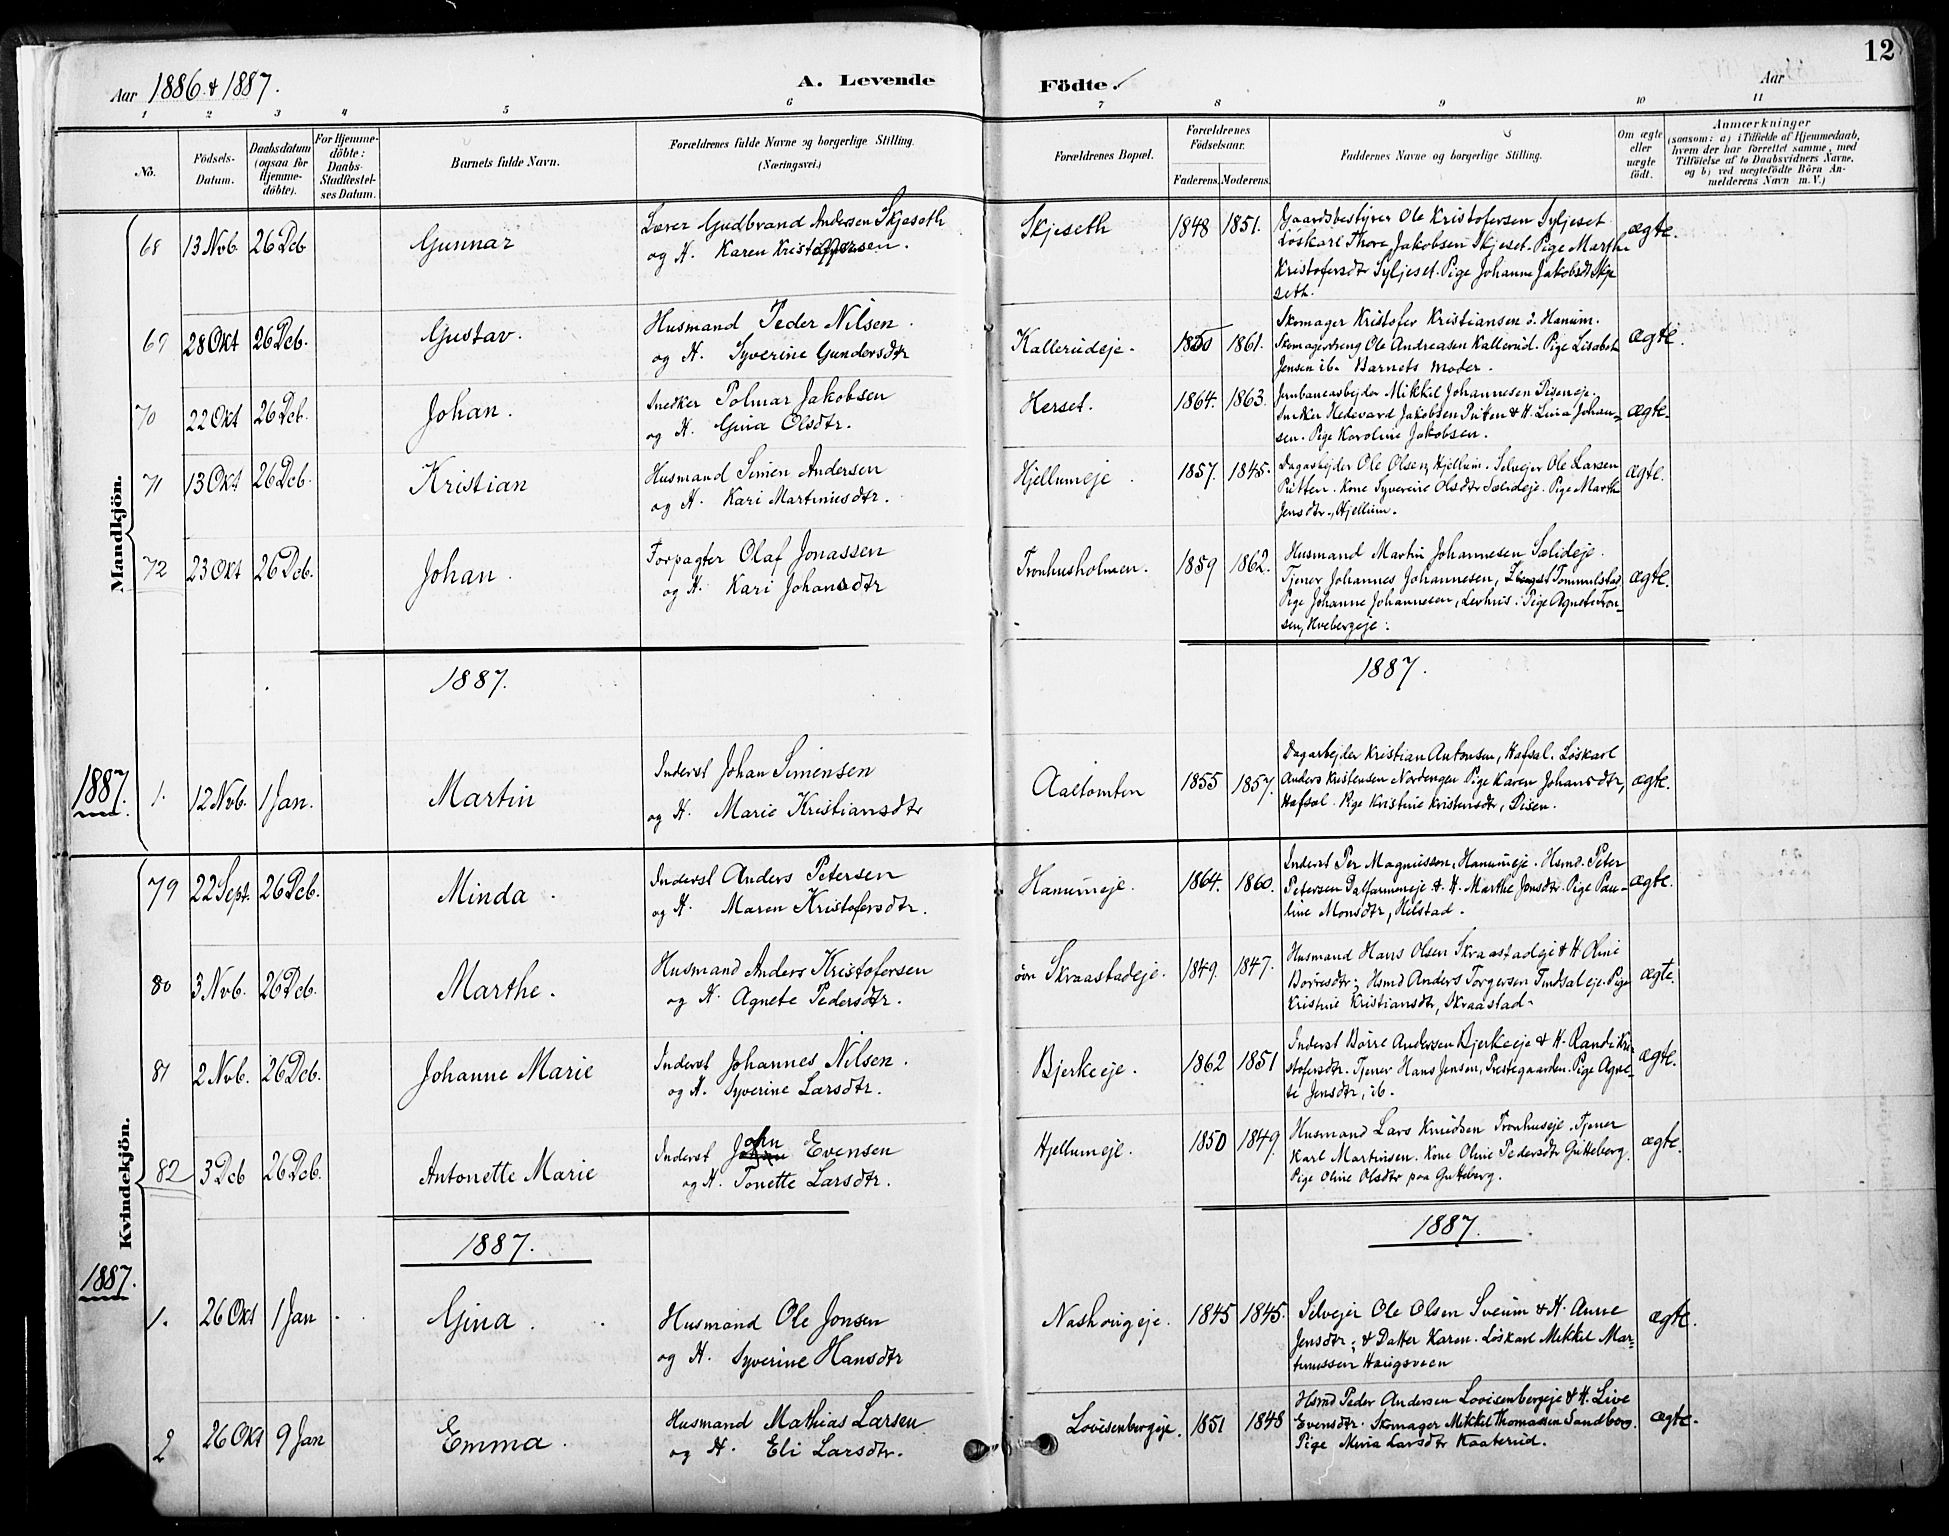 12
Aar 1886 & 1887. A. Levende Födte. Aar
1 2 3 4 5 6 7 8 9 10 11
No. Födsels-Datum. Daabsdatum (ogsaa for Hjemme-döbte). For Hjemme-döbte: Daabs-Stadfæstel-ses Datum. Barnets fulde Navn. Forældrenes fulde Navne og borgerlige Stilling. (Næringsvei.) Forældrenes Bopæl. Forældrenes Födselsaar. Faderens. Moderens. Faddernes Navne og borgerlige Stilling. Om ægte eller uægte födt. Anmærkninger (saasom: a) i Tilfælde af Hjemmedaab, hvem der har forrettet samme, med Tilföielse af to Daabsvidners Navne, og b) ved uægtefödte Börn An-melderens Navn m. V.)
Mandkjön.
68 13 Nvb. 26 Dcb Gunnar
Lærer Gudbrand Andersen Skjeseth
og H. Karen Kristoffersen.
Skjeseth 1848 1851.
Gaardsbestyrer Ole Kristofersen Syljeset
Løskarl Thore Jakobsen Skjeset. Pige Marthe
Kristofersdtr Syljeset. Pige Johanne Jakobsdt Skje
seth.
ægte.
69 28 Okt 26 Dcb. Gustav.
Husmand Peder Nilsen.
og H. Syverine Gundersdtr
Kallerudeje. 1850 1861.
Skomager Kristofer Kristiansen s. Hanum.
Skomagerdreng Ole Andreasen Kallerud. Pige Lisabet
Jensen ib. Barnets Moder.
ægte.
70 22 Okt 26 Dcb. Johan.
Snedker Polmar Jakobsen
og H. Gina Olsdtr.
Herset. 1864. 1863.
Jernbanearbejder Mikkel Johannesen Diseneje.
Snekker Hedevard Jakobsen Putten & H. Lina Johan-
sen. Pige Karoline Jakobsen.
ægte.
71 13 Okt 26 Dcb. Kristian
Husmand Simen Andersen
og H. Kari Martinusdtr.
Hjellumeje. 1857. 1845.
Dagarbejder Ole Olsen, Hjellum. Selvejer Ole Larsen
Putten. Kone Syverine Olsdtr Sælideje. Pige Marth
Jensdtr., Hjellum.
ægte.
72 23 Okt 26 Dcb. Johan.
Forpagter Olaf Jonassen
og H. Kari Johansdtr
Tronhusholmen. 1859 1862.
Husmand Martin Johannesen Sælideje.
Tjener Johannes Johannesen, Tommelstad
Pige Johanne Johannesen, Lerhus. Pige Agnete Tron-
sen, Hvebergeje.
ægte.
1887. 1887.
1887.
1. 12 Nvb. 1 Jan. Martin
Inderst Johan Simensen
og H. Marie Kristiansdtr
Aaltomten 1855 1857.
Dagarbejder Kristian Antonsen, Hafsal. Løskarl
Anders Kristensen Nordengen Pige Karen Johansdtr,
Hafsal. Pige Kristine Kristensdtr, Disen.
ægte.
Kvindekjön.
79 22 Sept. 26 Dcb. Minda.
Inderst Anders Petersen
og H. Maren Kristofersdtr.
Hanumeje. 1864. 1860.
Inderst Per Magnussen, Hanumeje. Hsmd. Peter
Petersen Dalfarmeneje & H. Marthe Jensdtr. Pige Pau-
line Monsdtr, Hilstad.
ægte.
80 3 Nvb. 26 Dcb. Marthe.
Husmand Anders Kristofersen
og H. Agnete Pedersdtr.
øvr Skraastadeje. 1849. 1847.
Husmand Hans Olsen Skraastadeje & H. Oline
Børresdtr; Hsmd Anders Torgersen Findsaleje. Pige
Kristine Kristiansdtr, Skraastad.
ægte.
81 2 Nvb. 26 Dcb. Johanne Marie
Inderst Johannes Nilsen.
og H. Syverine Larsdtr.
Bjerkeeje. 1862 1851
Inderst Børre Andersen Bjerkeeje & H. Randi Kri-
stofersdtr. Tjener Hans Jensen, Prestegaarden. Pige Agne-
te Jensdtr, ib.
ægte.
82 3 Dcb 26 Dcb. Antonette Marie
Inderst John Evensen
og H. Tonette Larsdtr.
Hjellumeje. 1850 1849.
Husmand Lars Knudsen Tronhuseje. Tjener
Karl Martinsen. Kone Oline Pedersdtr Gutteberg.
Pige Oline Olsdtr paa Gutteberg.
ægte.
1887. 1887.
1887.
1. 26 Okt 1 Jan Gina.
Husmand Ole Jonsen
og H. Syverine Hansdtr
Nashougeje. 1845 1845.
Selvejer Ole Olsen Sveum & H. Anne
Jensdtr; & Datter Karen. Løskarl Mikkel Mar-
tinussen Haugsveen
ægte.
2 26 Okt 9 Jan Emma.
Husmand Mathias Larsen
og H. Eli Larsdtr.
Lovisenbergeje. 1851 1848
Hsmd Peder Andersen Lovisenbergeje & H. Live
Evensdtr. Skomager Mikkel Thomassen Sandbo.
Pige Mina Larsdtr Kaaterud.
ægte.